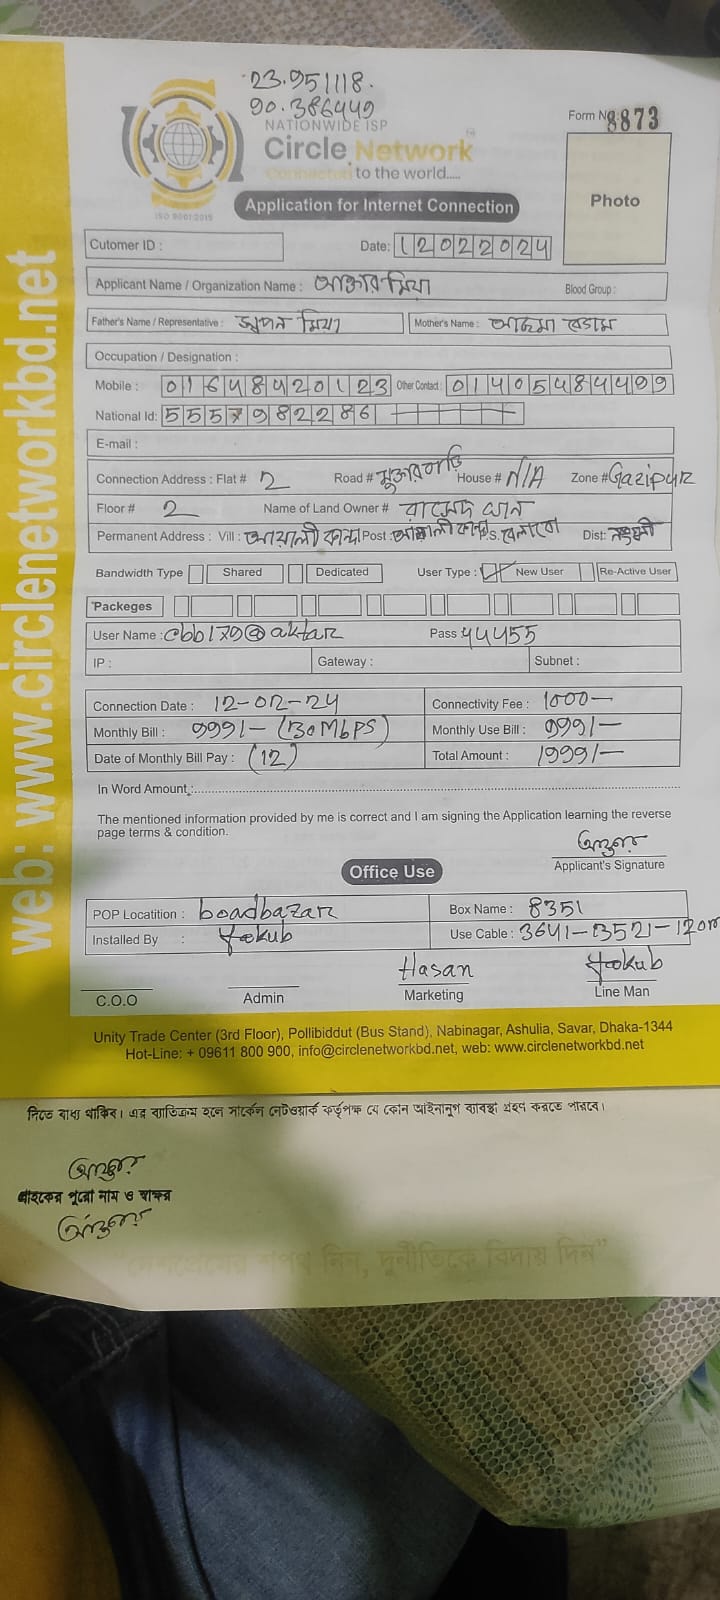 23.951118.
90.386449
NATIONWIDE ISP
Circle Network
Connected to the world.....
ISO 9001:2015
Form No. 8873
Photo
Application for Internet Connection
Cutomer ID :
Date: 12022024
Applicant Name / Organization Name : আক্তার মিয়া
Blood Group :
Father's Name / Representative : স্বপন মিয়া
Mother's Name : বেগম
Occupation / Designation :
Mobile : 01648420123 Other Contact : 01405484499
National Id: 5557982286
E-mail :
Connection Address : Flat # 2 Road # মুক্তারবাড়ি House # N/A Zone # Gazipur
Floor # 2 Name of Land Owner # রাসেদ খান
Permanent Address : Vill : Post : P.S. বেলাবো Dist: নরসিংদী
Bandwidth Type Shared Dedicated User Type : New User Re-Active User
*Packeges
User Name : cbb179@aktar Pass 44455
IP : Gateway : Subnet :
Connection Date : 12-02-24 Connectivity Fee : 1000—
Monthly Bill : 999/- (30 Mbps) Monthly Use Bill : 999/—
Date of Monthly Bill Pay : (12) Total Amount : 1999/—
In Word Amount :
The mentioned information provided by me is correct and I am signing the Application learning the reverse
page terms & condition.
Applicant's Signature
Office Use
POP Locatition : boadbazar Box Name : 8351
Installed By : Yeakub Use Cable : 3641-3521-120m
Hasan Yeakub
C.O.O Admin Marketing Line Man
Unity Trade Center (3rd Floor), Pollibiddut (Bus Stand), Nabinagar, Ashulia, Savar, Dhaka-1344
Hot-Line: + 09611 800 900, info@circlenetworkbd.net, web: www.circlenetworkbd.net
web: www.circlenetworkbd.net
নিতে বাধ্য থাকিব। এর ব্যতিক্রম হলে সার্কেল নেটওয়ার্ক কর্তৃপক্ষ যে কোন আইনানুগ ব্যবস্থা গ্রহণ করতে পারবে।
গ্রাহকের পুরো নাম ও স্বাক্ষর
"দেশপ্রেমের শপথ নিন, দুর্নীতিকে বিদায় দিন"